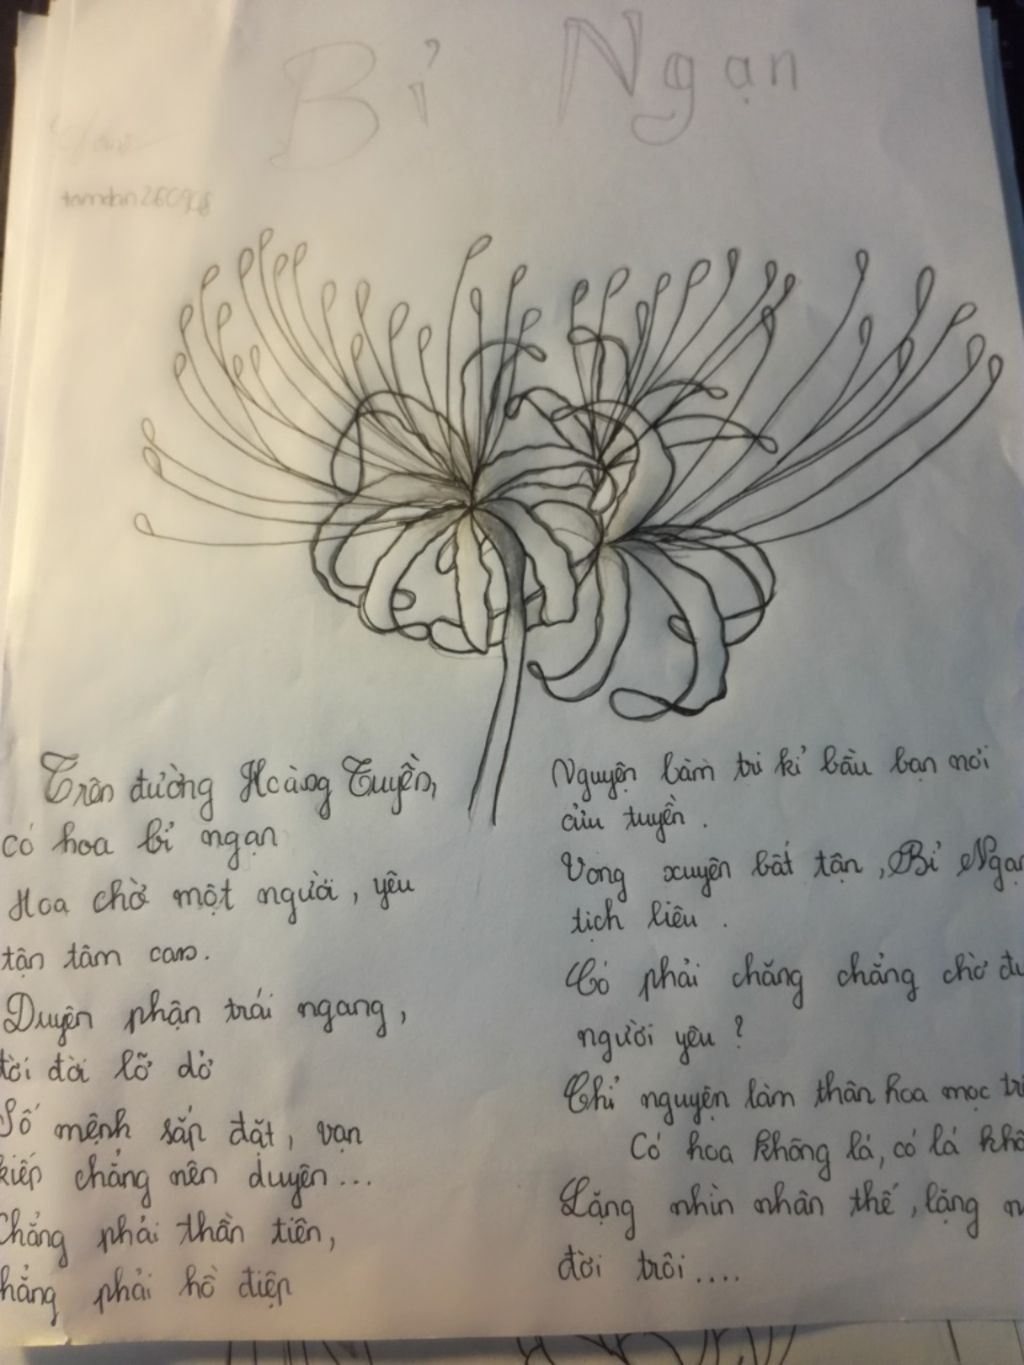 Bỉ Ngạn
Trên đường Hoàng Tuyền,
có hoa bỉ ngạn
Hoa chờ một người, yêu
tận tâm can.
Duyên phận trái ngang,
đời đời lỡ dở
Số mệnh sắp đặt, vạn
kiếp chẳng nên duyên...
Chẳng phải thần tiên,
chẳng phải hồ điệp
Nguyện làm tri kỉ bầu bạn nơi
cửu tuyền.
Vong xuyên bất tận, Bỉ Ngạn
tịch liêu.
Có phải chăng chẳng chờ
người yêu?
Chỉ nguyện làm thân hoa mọc
Có hoa không lá, có lá
Lặng nhìn nhân thế, lặng
đời trôi....